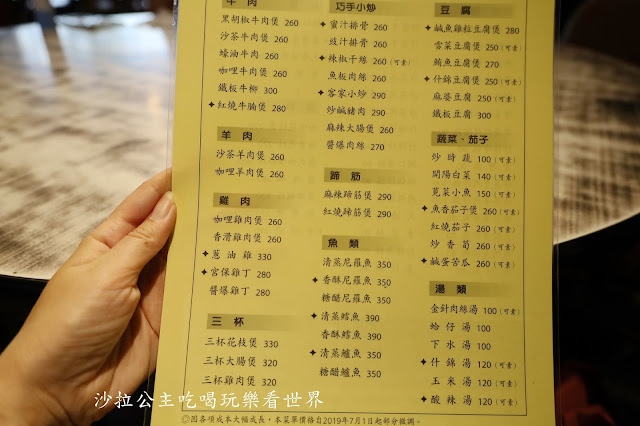 牛肉
黑胡椒牛肉煲 260
沙茶牛肉煲 260
蠔油牛肉 260
咖哩牛肉煲 260
鐵板牛柳 300
✦紅燒牛腩煲 280
羊肉
沙茶羊肉煲 260
咖哩羊肉煲 260
雞肉
咖哩雞肉煲 260
香滑雞肉煲 260
✦蔥油雞 330
✦宮保雞丁 280
醬爆雞丁 280
三杯
三杯花枝煲 330
三杯大腸煲 320
三杯雞肉煲 320
巧手小炒
✦蜜汁排骨 260
豉汁排骨 260
✦辣椒干絲 260(可素)
魚板肉絲 260
✦客家小炒 290
炒鹹豬肉 290
麻辣大腸煲 260
醬爆肉絲 270
蹄筋
麻辣蹄筋煲 290
紅燒蹄筋煲 290
魚類
清蒸尼羅魚 350
✦香酥尼羅魚 350
糖醋尼羅魚 350
✦清蒸鱈魚 390
香酥鱈魚 390
✦清蒸鱸魚 350
糖醋鱸魚 350
豆腐
✦鹹魚雞粒豆腐煲 280
雪菜豆腐煲 250(可素)
鮪魚豆腐煲 270
✦什錦豆腐煲 250(可素)
麻婆豆腐 250(可素)
鐵板豆腐 300
蔬菜、茄子
炒時蔬 100(可素)
開陽白菜 140(可素)
莧菜小魚 150(可素)
✦魚香茄子煲 260(可素)
紅燒茄子 260(可素)
炒香菇 260(可素)
✦鹹蛋苦瓜 260(可素)
湯類
金針肉絲湯 100(可素)
蛤仔湯 100
下水湯 100
✦什錦湯 120(可素)
玉米湯 120(可素)
✦酸辣湯 120(可素)
◎因各項成本大幅成長,本菜單價格自2019年7月1日起部分微調。
沙拉公主吃喝玩樂看世界